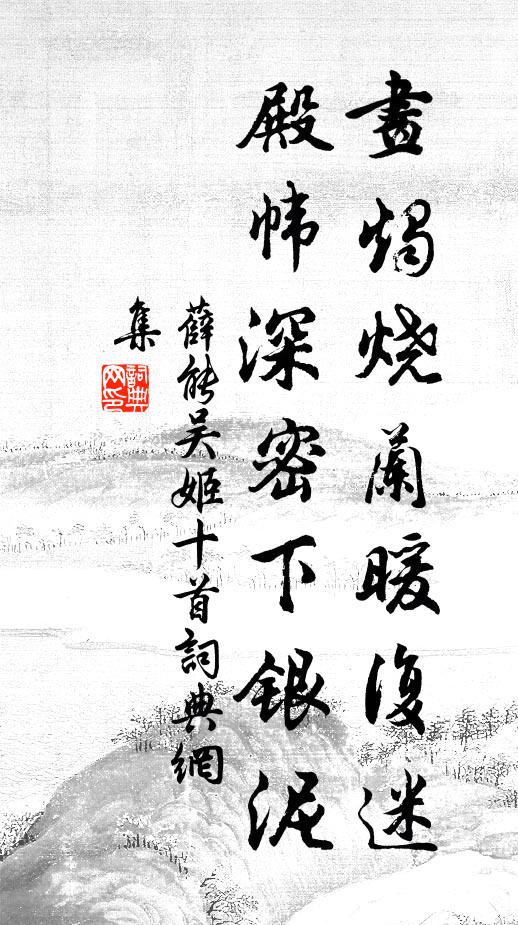 畫燭烧蘭暖復迷
殿幃深密下銀泥
薛能吴姬十首詞典網
集
詞典
网印